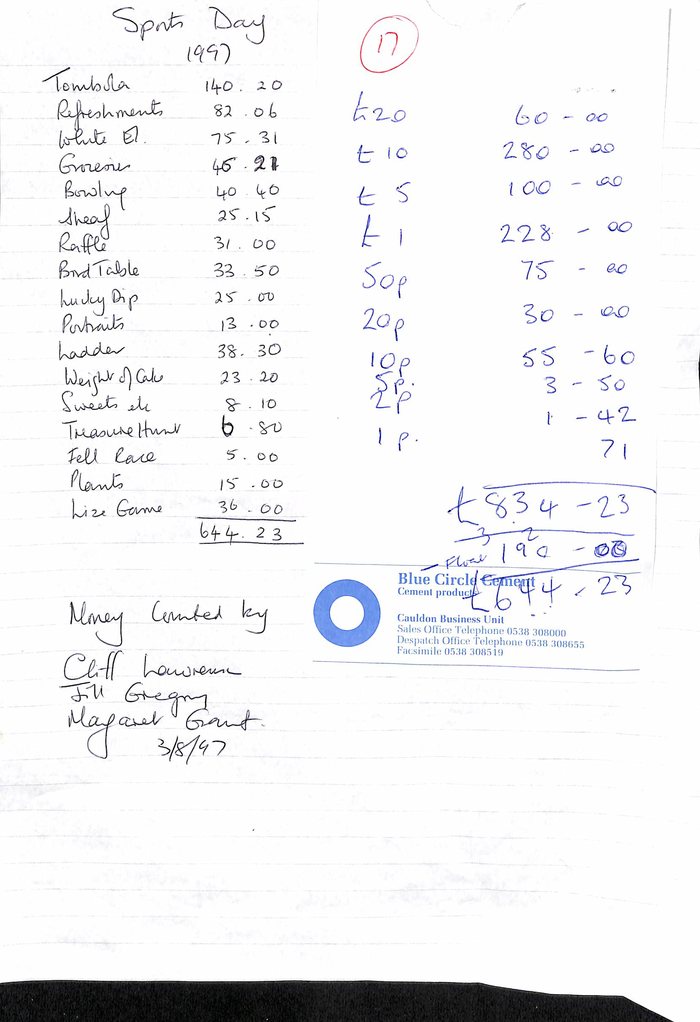 Sports Day
1997
Tombola 140.20
Refreshments 82.06
White El. 75.31
Groceries 46.21
Bowling 40.40
Sheaf 25.15
Raffle 31.00
Bird Table 33.50
Lucky Dip 25.00
Portraits 13.00
Ladder 38.30
Weight of Cake 23.20
Sweets etc 8.10
Treasure Hunt 6.80
Fell Race 5.00
Plants 15.00
Lize Game 36.00
644.23
Money Counted by
Cliff Lawrence
Jill Gregory
Margaret Grant.
3/8/97
17
£20 60-00
£10 280-00
£5 100-00
£1 228-00
50p 75-00
20p 30-00
10p 55-60
5p. 3-50
2p 1-42
1p. 71
£834-23
3 2
- Float 190-00
£644-23
Blue Circle Cement
Cement products
Cauldon Business Unit
Sales Office Telephone 0538 308000
Despatch Office Telephone 0538 308655
Facsimile 0538 308519